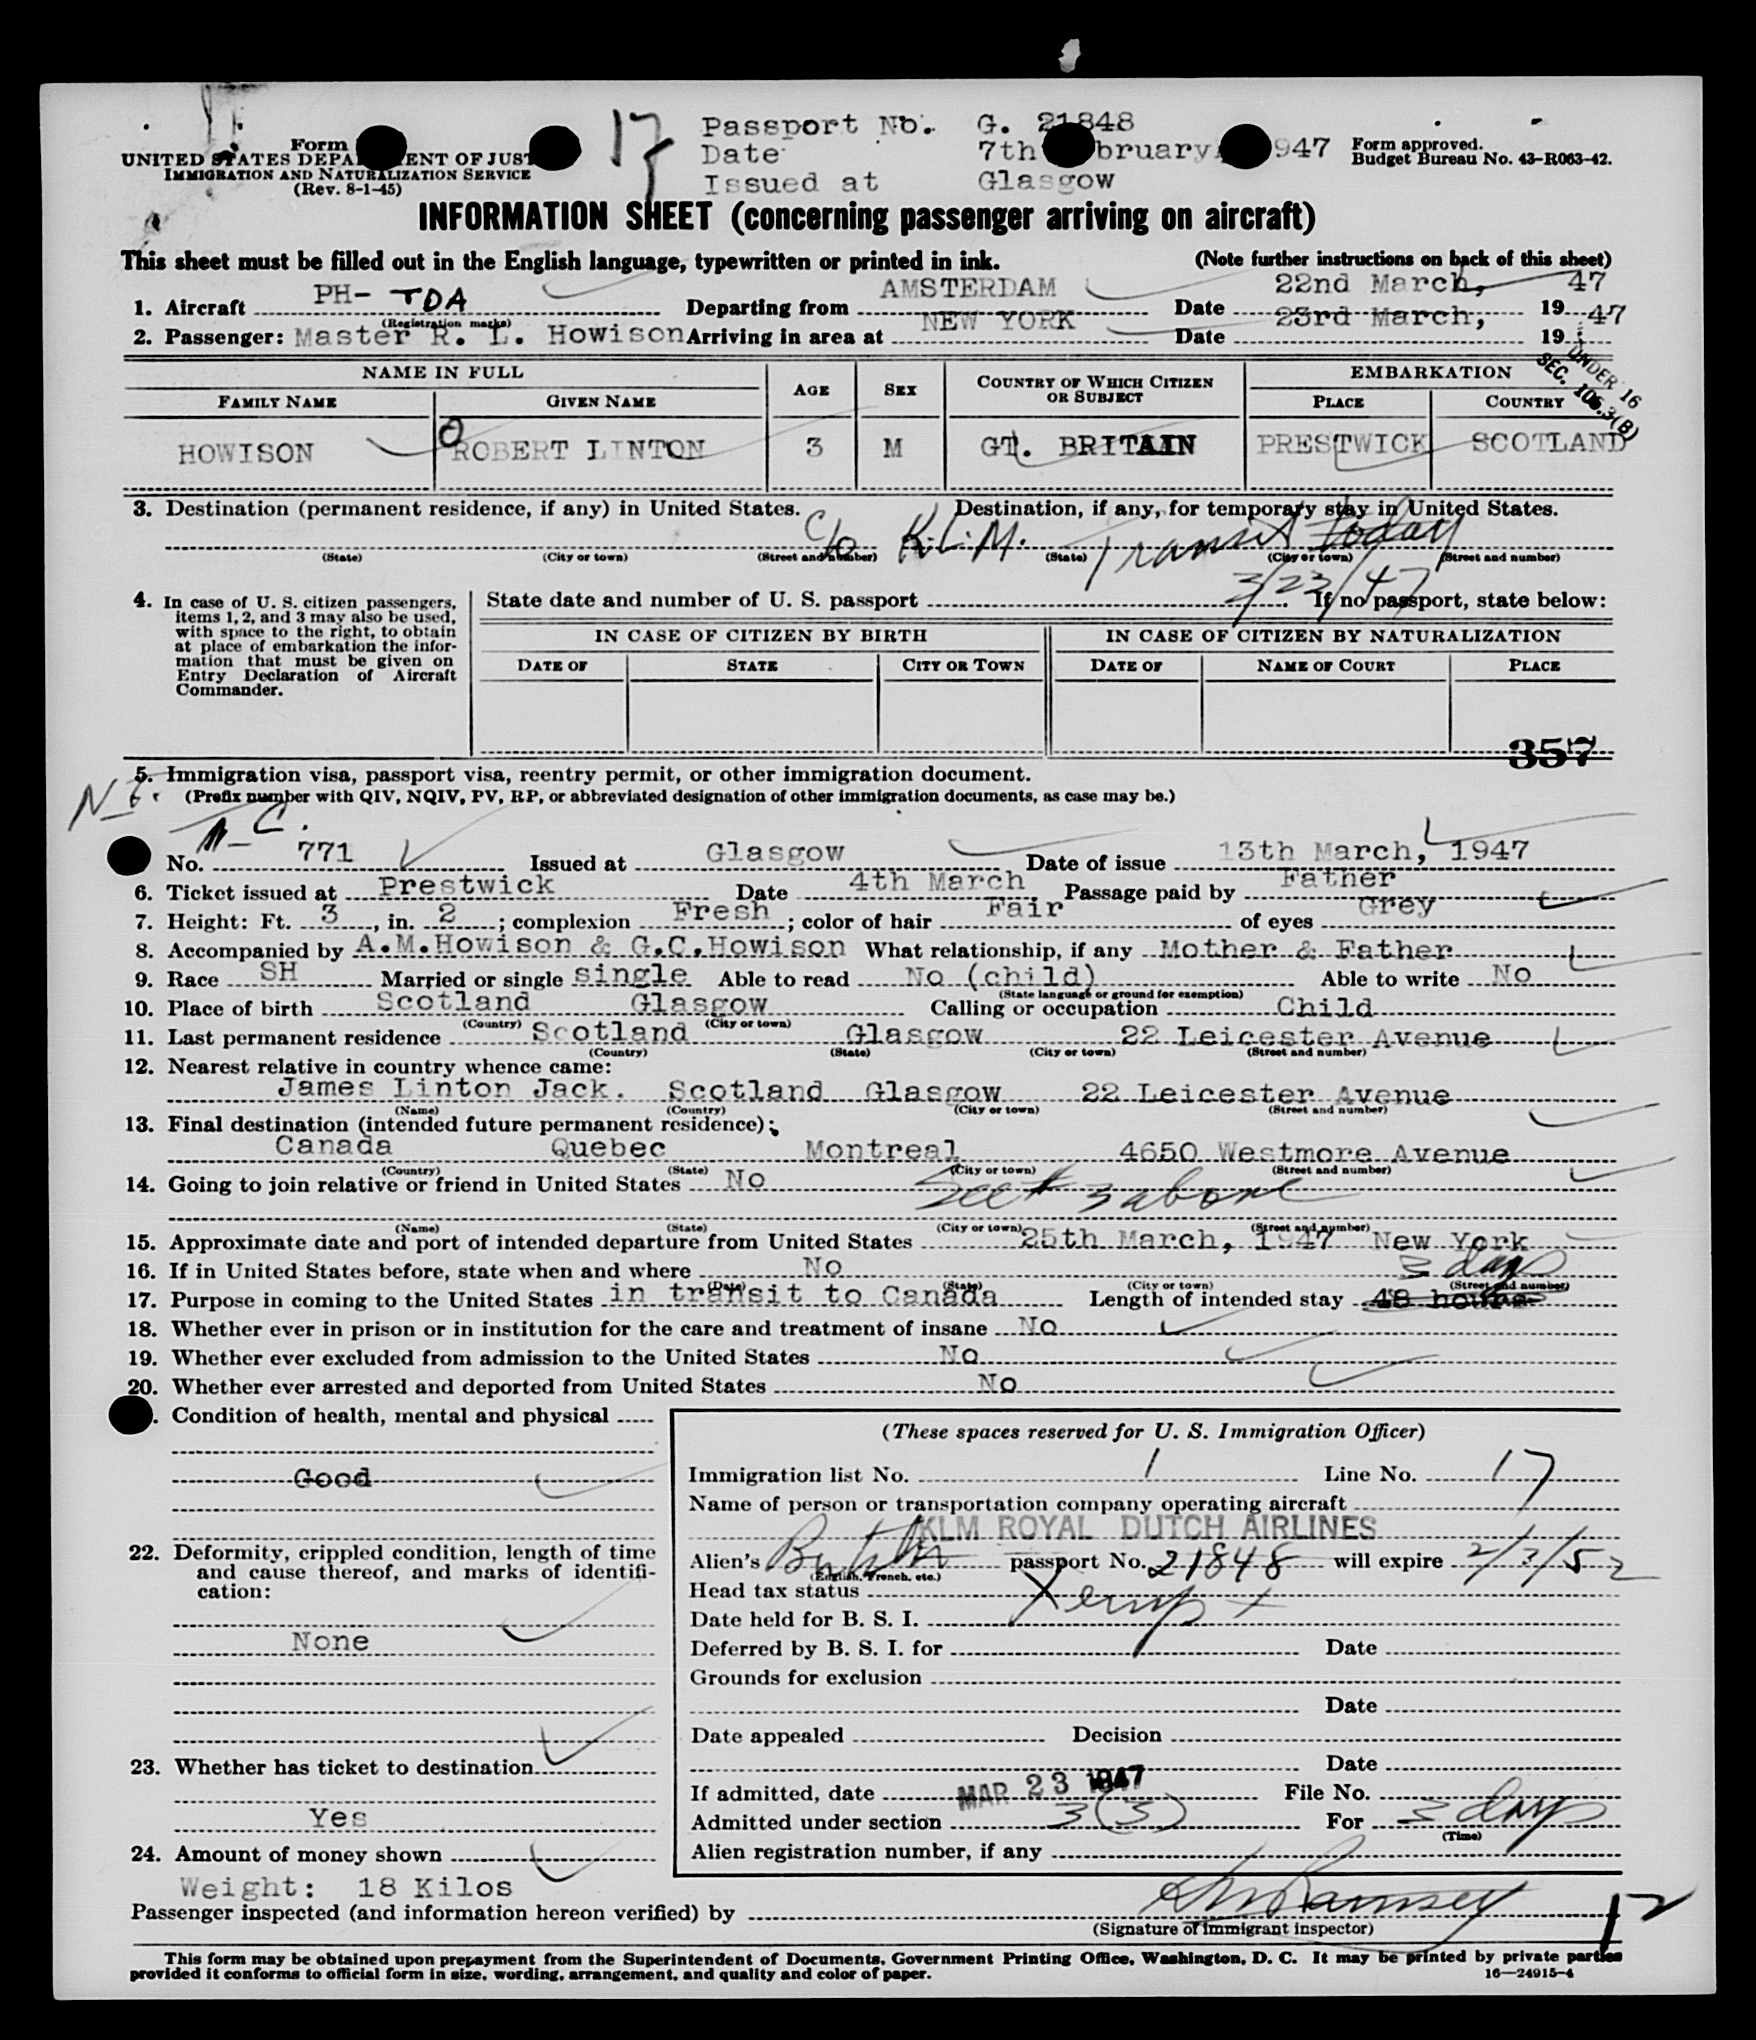 17
Passport No. G. 21848
Date 7th February, 1947
Issued at Glasgow
Form
UNITED STATES DEPARTMENT OF JUSTICE
IMMIGRATION AND NATURALIZATION SERVICE
(Rev. 8-1-45)
Form approved.
Budget Bureau No. 43-R063-42.
INFORMATION SHEET (concerning passenger arriving on aircraft)
This sheet must be filled out in the English language, typewritten or printed in ink. (Note further instructions on back of this sheet)
1. Aircraft PH- TDA Departing from AMSTERDAM Date 22nd March, 19 47
(Registration marks)
2. Passenger: Master R. L. Howison Arriving in area at NEW YORK Date 23rd March, 19 47
UNDER 16
SEC. 105.3(B)
NAME IN FULL AGE SEX COUNTRY OF WHICH CITIZEN OR SUBJECT EMBARKATION
FAMILY NAME GIVEN NAME PLACE COUNTRY
HOWISON ROBERT LINTON 3 M GT. BRITAIN PRESTWICK SCOTLAND
3. Destination (permanent residence, if any) in United States. Destination, if any, for temporary stay in United States.
c/o K.L.M. Transit today
(State) (City or town) (Street and number) (State) (City or town) (Street and number)
3/23/47
4. In case of U. S. citizen passengers, items 1, 2, and 3 may also be used, with space to the right, to obtain at place of embarkation the information that must be given on Entry Declaration of Aircraft Commander.
State date and number of U. S. passport If no passport, state below:
IN CASE OF CITIZEN BY BIRTH IN CASE OF CITIZEN BY NATURALIZATION
DATE OF STATE CITY OR TOWN DATE OF NAME OF COURT PLACE
357
5. Immigration visa, passport visa, reentry permit, or other immigration document.
(Prefix number with QIV, NQIV, PV, RP, or abbreviated designation of other immigration documents, as case may be.)
No. 771 Issued at Glasgow Date of issue 13th March, 1947
6. Ticket issued at Prestwick Date 4th March Passage paid by Father
7. Height: Ft. 3, in. 2; complexion Fresh; color of hair Fair of eyes Grey
8. Accompanied by A.M.Howison & G.C.Howison What relationship, if any Mother & Father
9. Race SH Married or single single Able to read No (child) Able to write No
(State language or ground for exemption)
10. Place of birth Scotland Glasgow Calling or occupation Child
(Country) (City or town)
11. Last permanent residence Scotland Glasgow 22 Leicester Avenue
(Country) (State) (City or town) (Street and number)
12. Nearest relative in country whence came:
James Linton Jack. Scotland Glasgow 22 Leicester Avenue
(Name) (Country) (City or town) (Street and number)
13. Final destination (intended future permanent residence):
Canada Quebec Montreal 4650 Westmore Avenue
(Country) (State) (City or town) (Street and number)
14. Going to join relative or friend in United States No See # 3 above
(Name) (State) (City or town) (Street and number)
15. Approximate date and port of intended departure from United States 25th March, 1947 New York
16. If in United States before, state when and where No
(Date) (State) (City or town) (Street and number)
3 days
17. Purpose in coming to the United States in transit to Canada Length of intended stay 48 hours
18. Whether ever in prison or in institution for the care and treatment of insane No
19. Whether ever excluded from admission to the United States No
20. Whether ever arrested and deported from United States No
. Condition of health, mental and physical
Good
22. Deformity, crippled condition, length of time and cause thereof, and marks of identification:
None
23. Whether has ticket to destination
Yes
24. Amount of money shown
Weight: 18 Kilos
(These spaces reserved for U. S. Immigration Officer)
Immigration list No. 1 Line No. 17
Name of person or transportation company operating aircraft
KLM ROYAL DUTCH AIRLINES
Alien's British passport No. 21848 will expire 2/7/52
(English, French, etc.)
Head tax status Xempt
Date held for B. S. I.
Deferred by B. S. I. for Date
Grounds for exclusion
Date
Date appealed Decision
Date
If admitted, date MAR 23 1947 File No.
Admitted under section 3(3) For 3 days
(Time)
Alien registration number, if any
Passenger inspected (and information hereon verified) by Ramsey
(Signature of immigrant inspector)
12
This form may be obtained upon prepayment from the Superintendent of Documents, Government Printing Office, Washington, D. C. It may be printed by private parties
provided it conforms to official form in size, wording, arrangement, and quality and color of paper. 16—24915-4